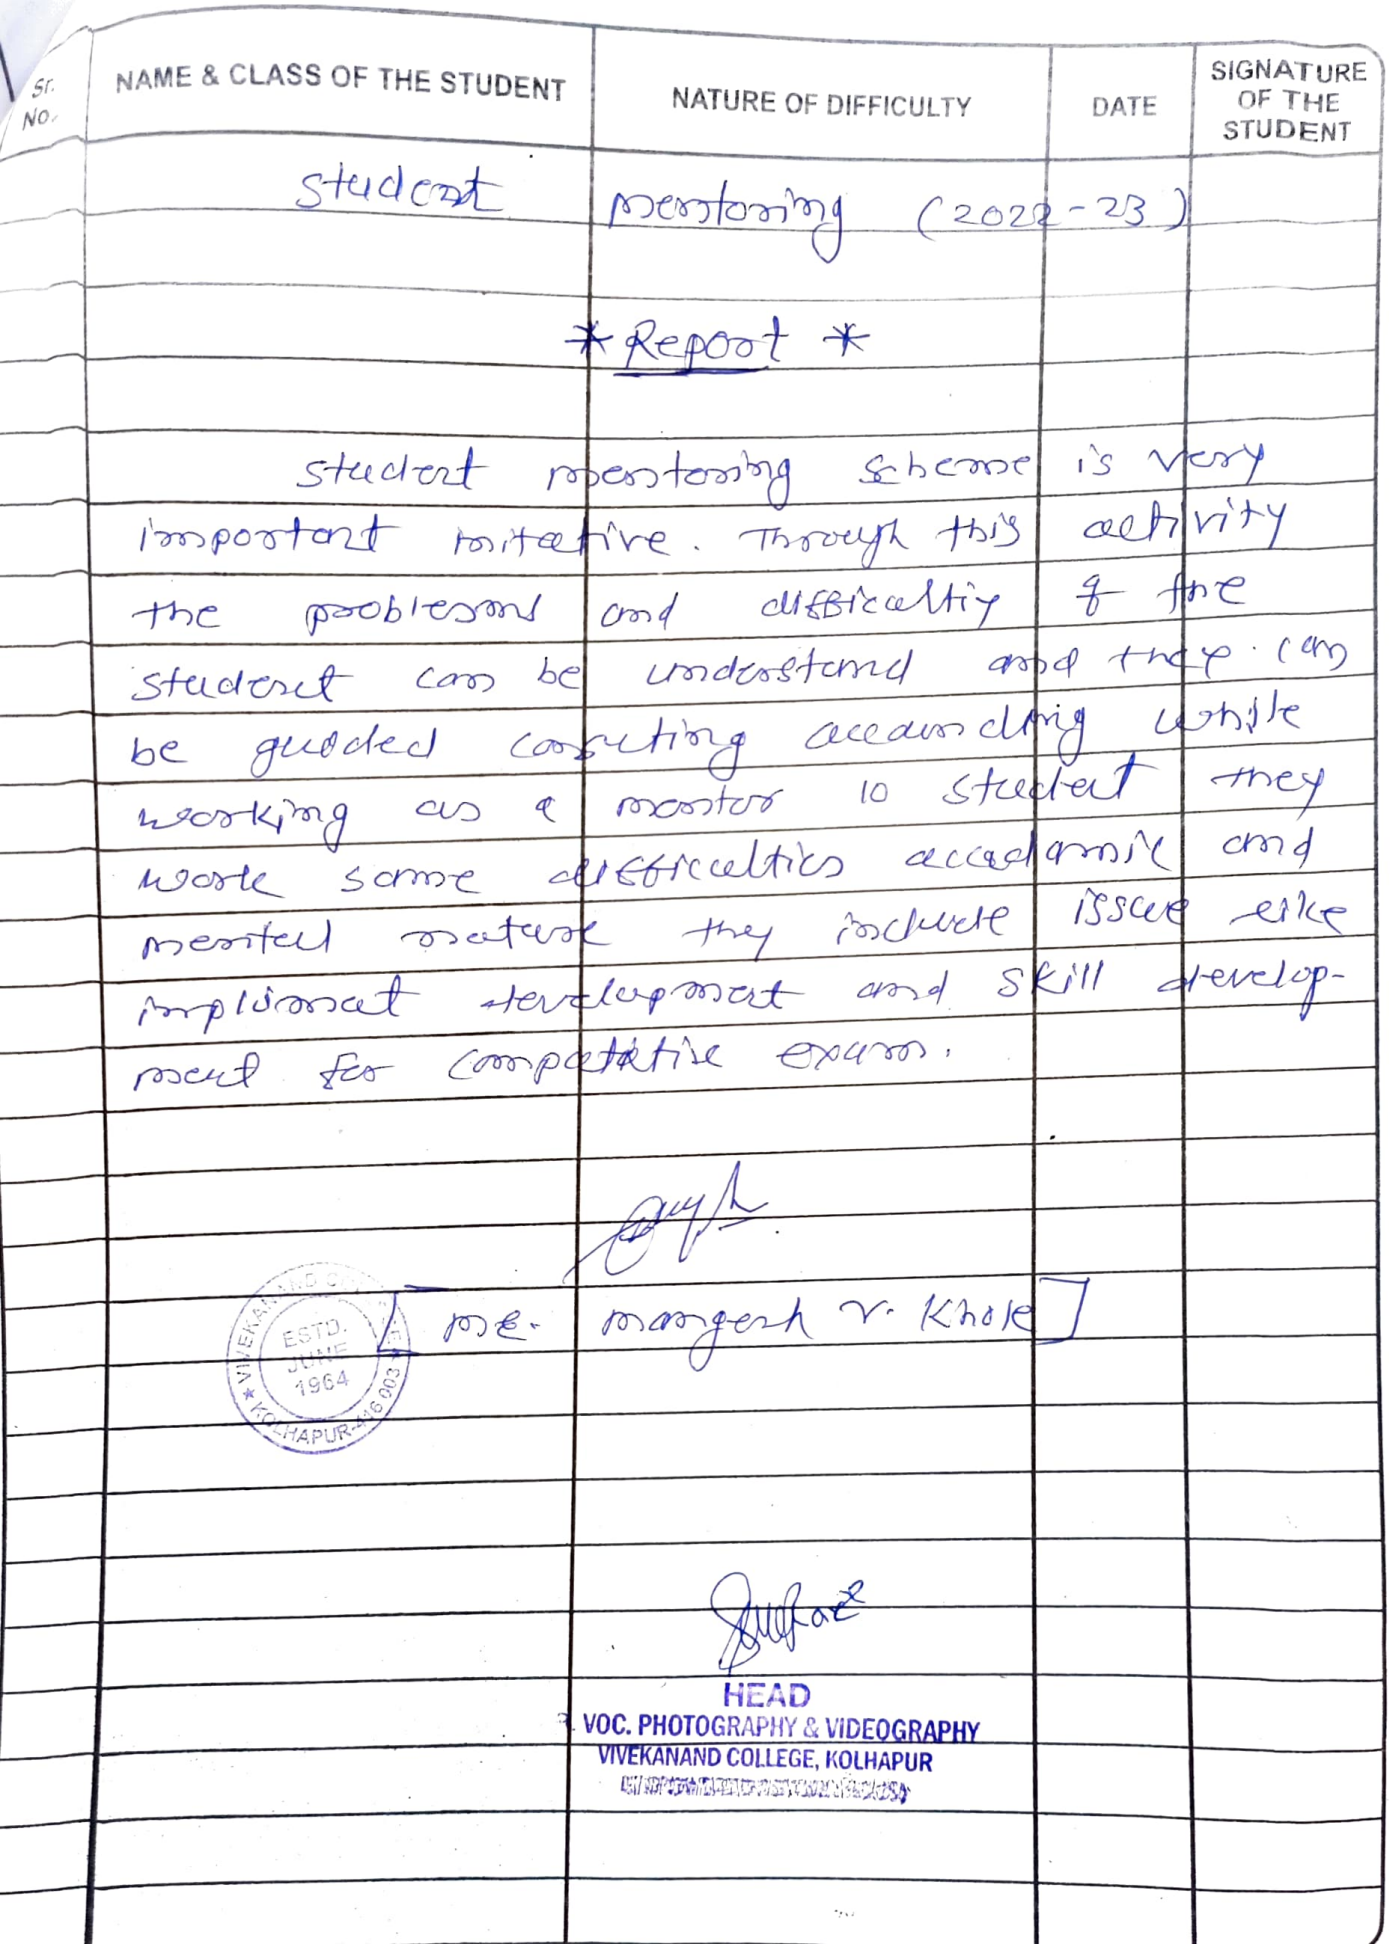 Sr. No. NAME & CLASS OF THE STUDENT NATURE OF DIFFICULTY DATE SIGNATURE OF THE STUDENT
Student mentoring (2022-23)
* Report *
Student mentoring scheme is very
important initative. Through this activity
the problems and difficultiy of the
student can be understand and they can
be guided accounding while
working as a mentor 10 student they
work some difficulties accadamic and
mental nature they include issue like
implimeat development and skill develop-
ment for compatative exam.
[ Mr. Mangesh V. Khole ]
VIVEKANAND COLLEGE
ESTD.
JUNE
1964
KOLHAPUR-416 003
HEAD
VOC. PHOTOGRAPHY & VIDEOGRAPHY
VIVEKANAND COLLEGE, KOLHAPUR